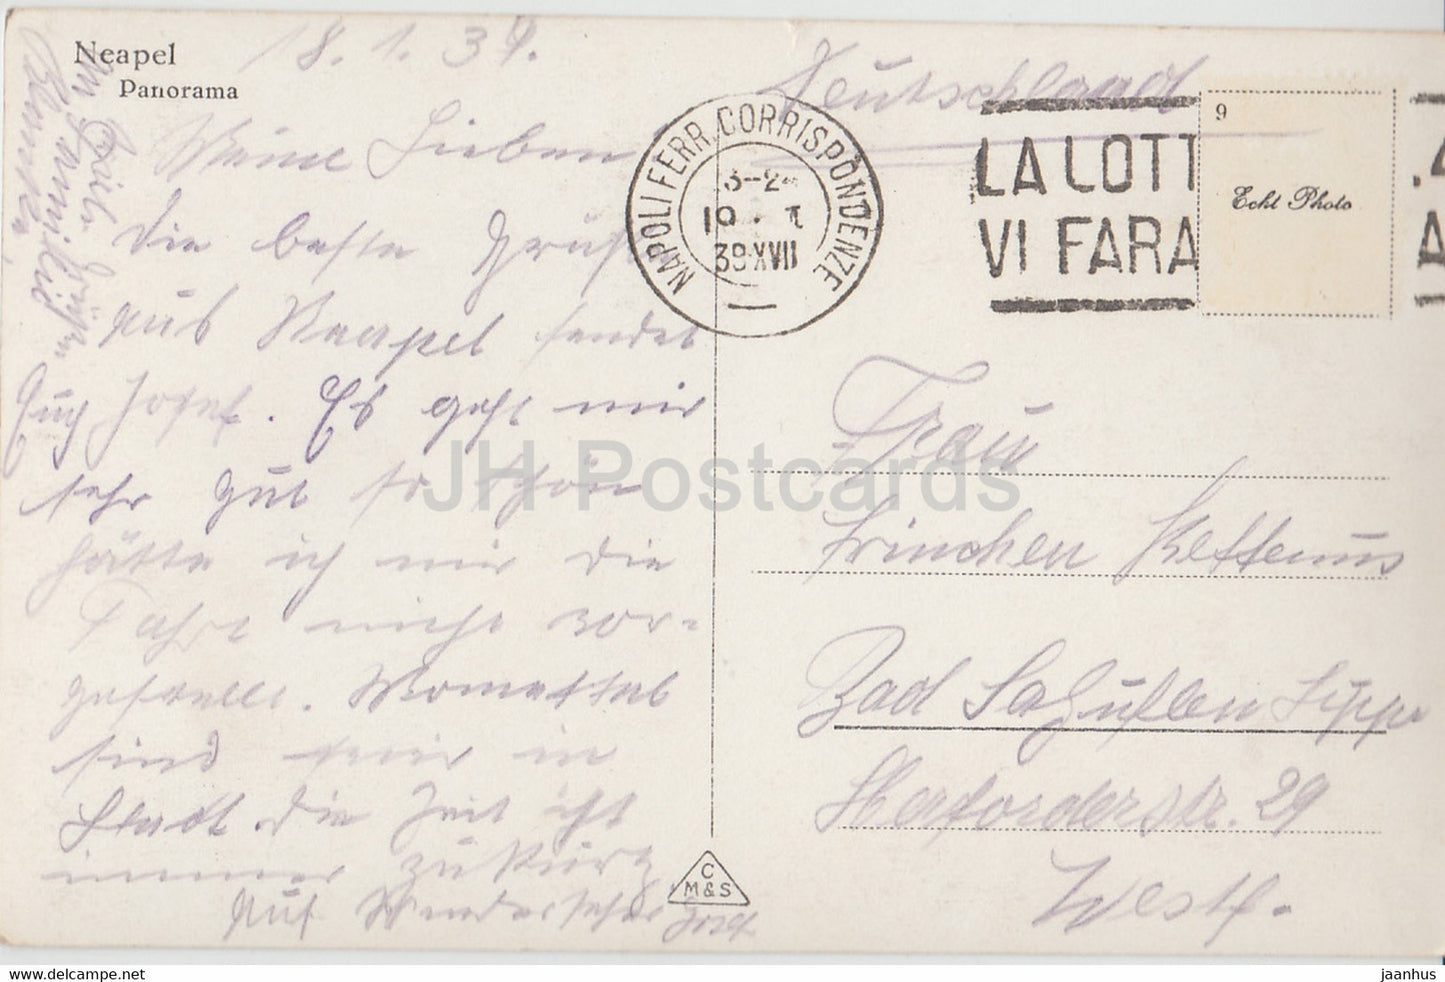 Neapel
Panorama
18.1.39.
Meine Lieben
die beste Grüße
aus Neapel sendet
Euch Josef. Es geht mir
sehr gut so schön
hätte ich mir die
Fahrt nicht vor-
gestellt. Momental
sind wir in
Stadt. die Zeit ist
immer zu kurz
Auf Wiedersehen Josef
Deutschland
NAPOLI FERR. CORRISPONDENZE
19 . I
39 XVII
LA LOTT
VI FARA
9
Echt Photo
Frau
Trinchen
Bad Salzuflen Lippe
Herforderstr. 29
Westf.
C
M & S
JH Postcards
jaanhus
delcampe.net